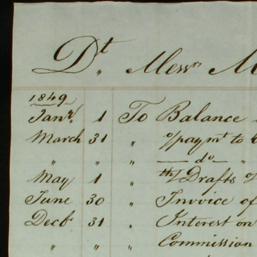 Dt. Messrs M
1849
Jany 1 To Balance
March 31 " paymt to
" " " do
May 1 " Drafts of
June 30 " Invoice of
Decbr 31 " Interest on
" " " Commission